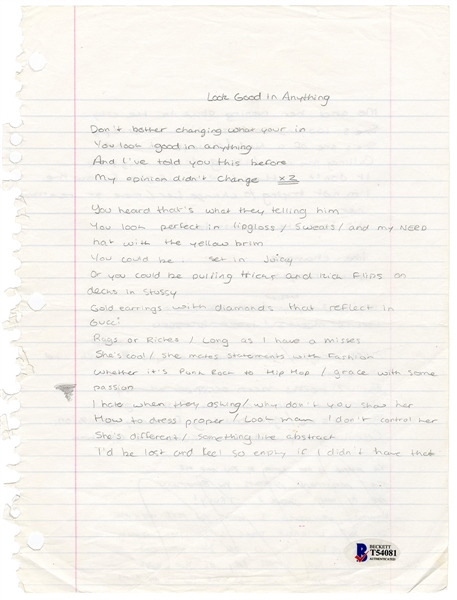 Look Good In Anything
Don't bother changing what your in
You look good in anything
And I've told you this before
My opinion didn't change x2
You heard that's what they telling him
You look perfect in lipgloss / Sweats / and my NERD
hat with the yellow brim
You could be set in Juicy
Or you could be pulling tricks and kick flips on
decks in Stussy
Gold earrings with diamonds that reflect in
Gucci
Rags or Riches / Long as I have a misses
She's cool / she makes statements with Fashion
whether it's Punk Rock to Hip Hop / grace with some
passion
I hate when they asking / why don't you show her
How to dress proper / Look mam I don't control her
She's different / something like abstract
I'd be lost and feel so empty if I didn't have that
BECKETT
T54081
AUTHENTICATED